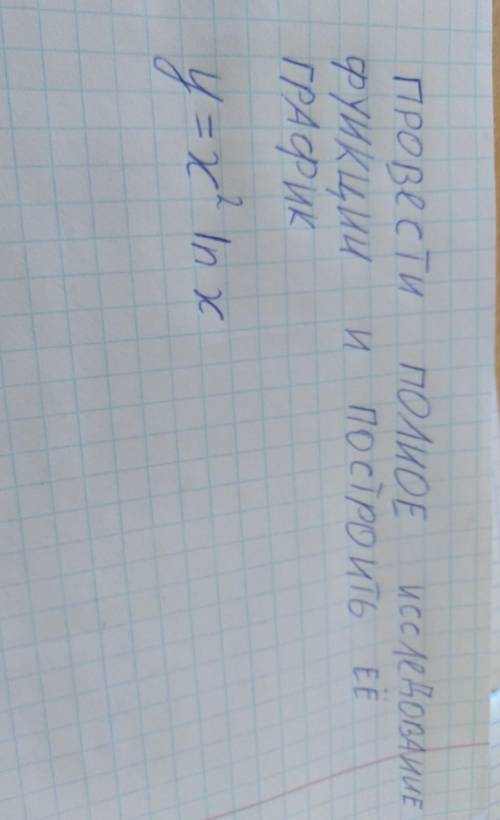 ПРОВЕСТИ ПОЛНОЕ ИССЛЕДОВАНИЕ
ФУНКЦИИ И ПОСТРОИТЬ ЕЁ
ГРАФИК
y = x² ln x